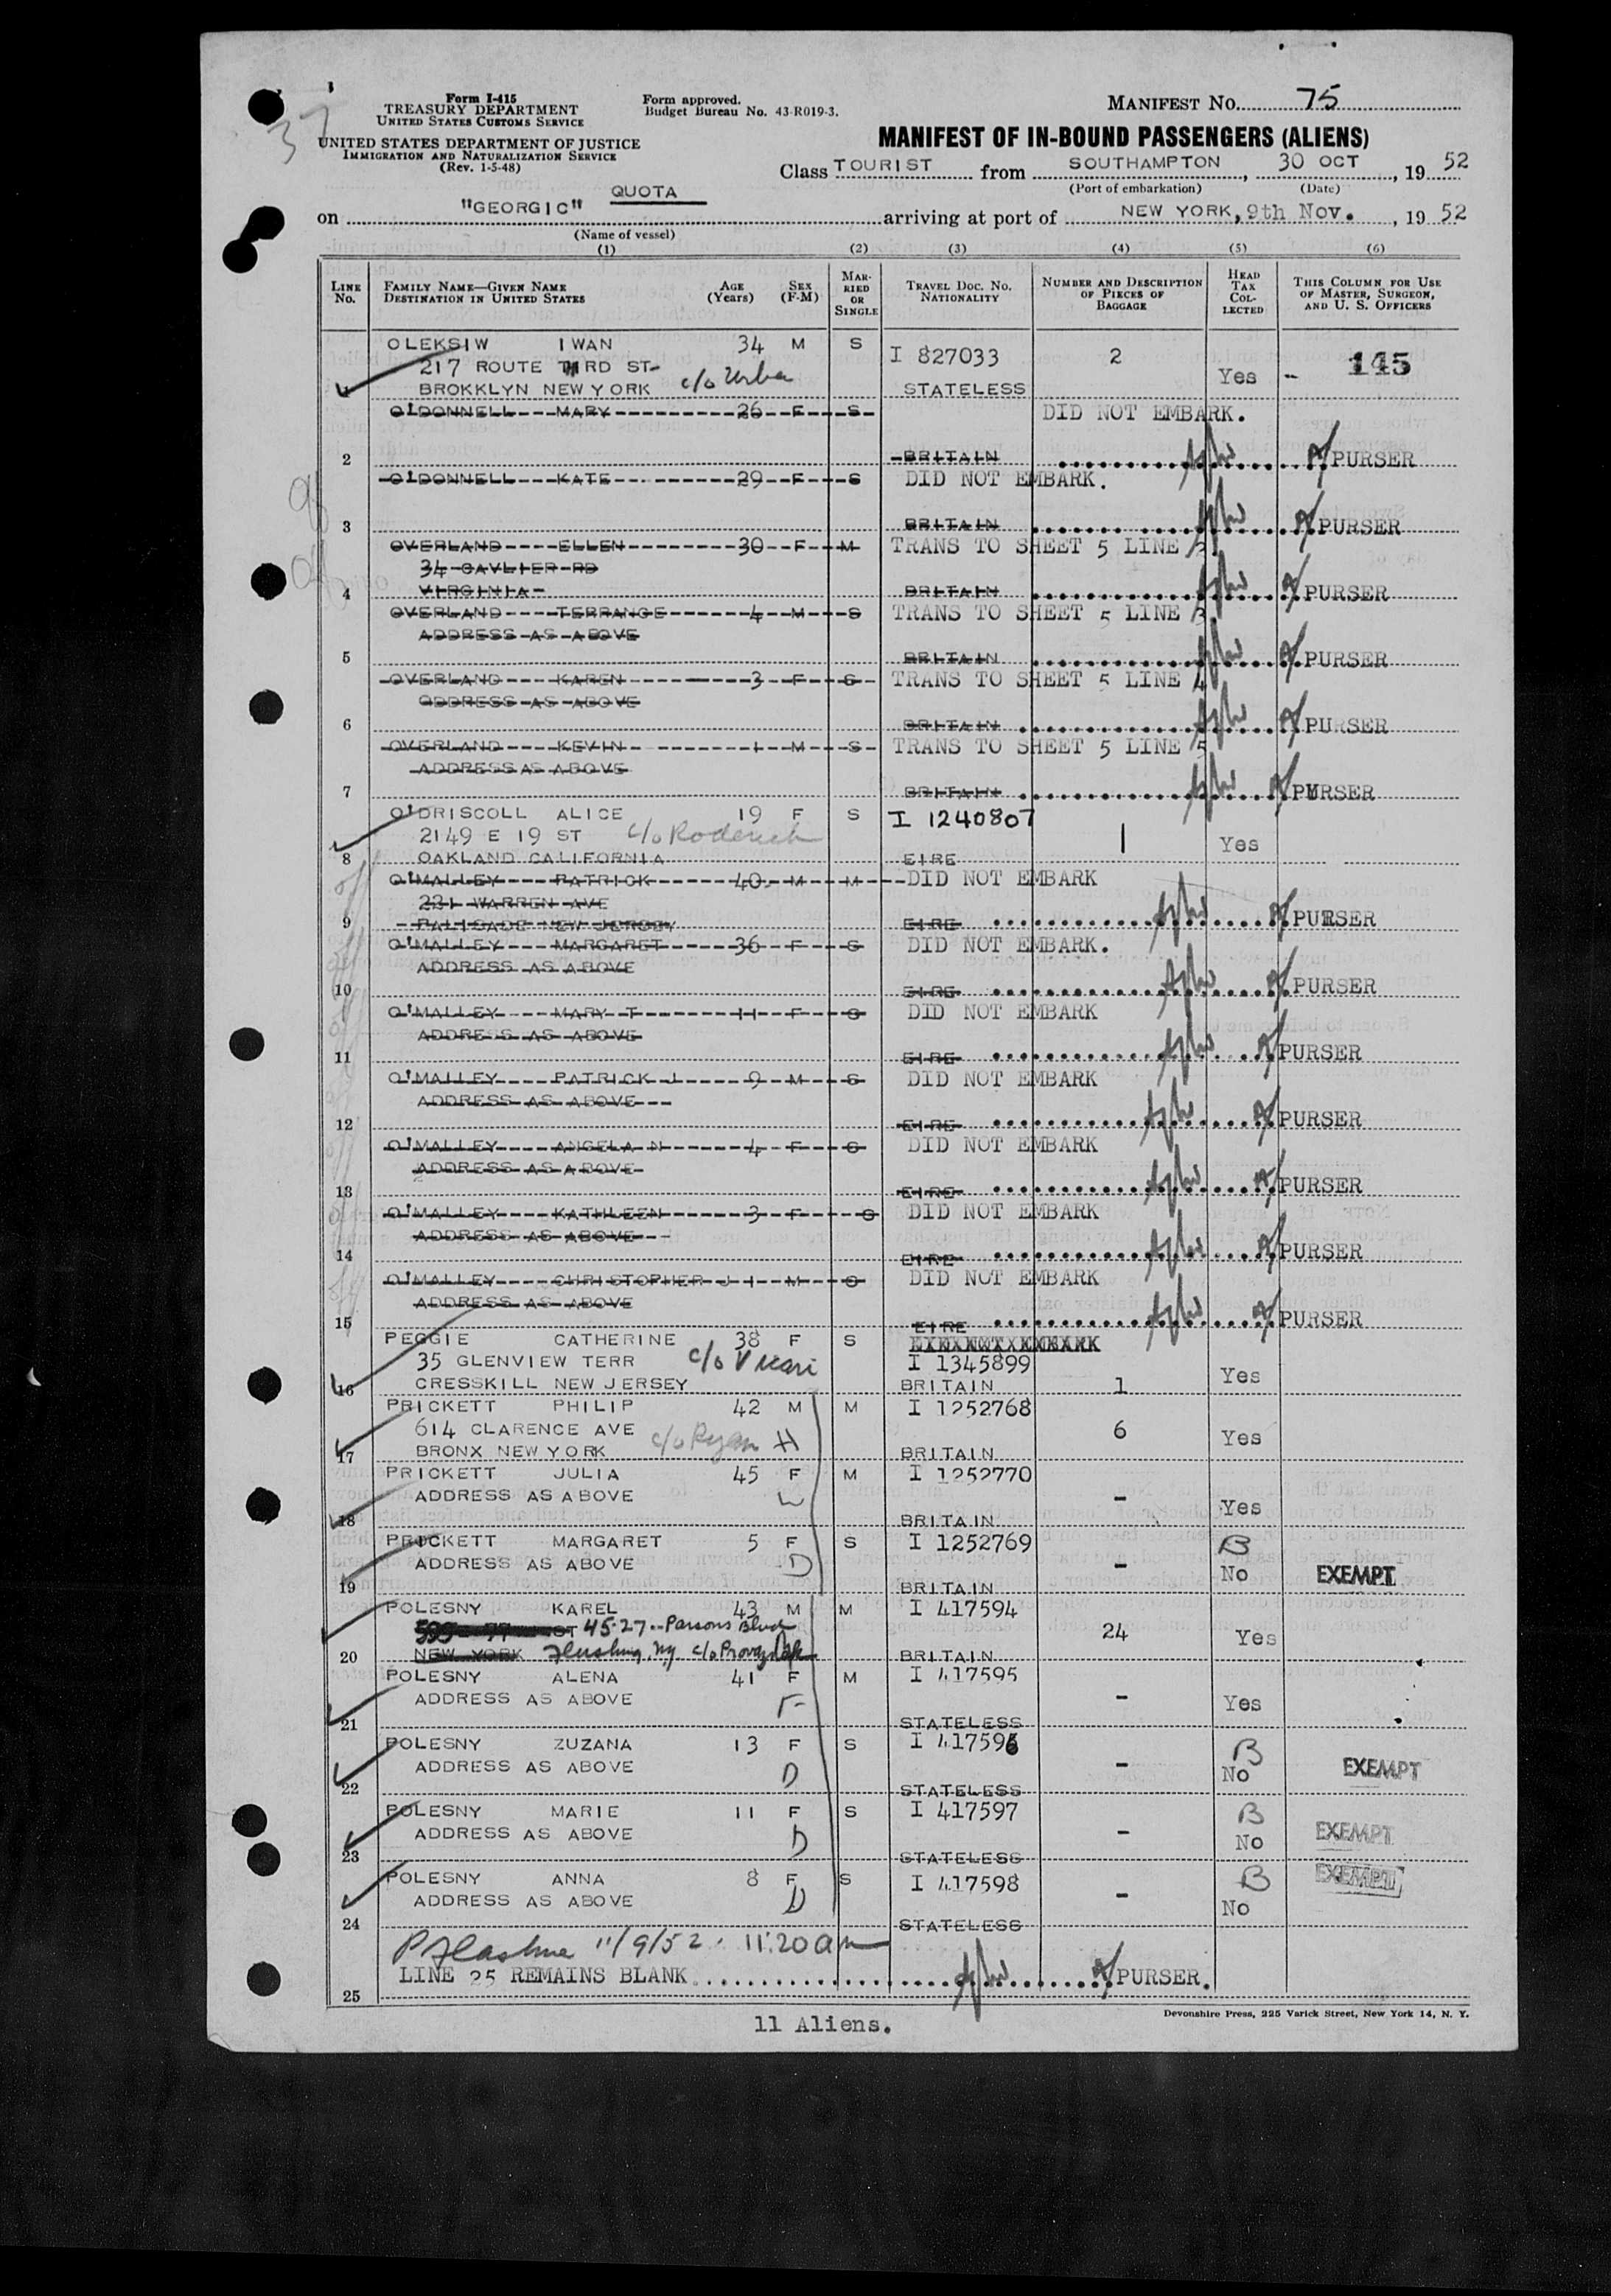 Form I-415
TREASURY DEPARTMENT
UNITED STATES CUSTOMS SERVICE
UNITED STATES DEPARTMENT OF JUSTICE
IMMIGRATION AND NATURALIZATION SERVICE
(Rev. 1-5-48)
Form approved.
Budget Bureau No. 43-R019-3.
MANIFEST No. 75
MANIFEST OF IN-BOUND PASSENGERS (ALIENS)
Class TOURIST from SOUTHAMPTON, 30 OCT, 19 52
(Port of embarkation) (Date)
QUOTA
on "GEORGIC" arriving at port of NEW YORK, 9th Nov., 19 52
(Name of vessel)
(1) (2) (3) (4) (5) (6)
LINE No. FAMILY NAME—GIVEN NAME DESTINATION IN UNITED STATES AGE (Years) SEX (F-M) MARRIED OR SINGLE TRAVEL DOC. NO. NATIONALITY NUMBER AND DESCRIPTION OF PIECES OF BAGGAGE HEAD TAX COLLECTED THIS COLUMN FOR USE OF MASTER, SURGEON, AND U. S. OFFICERS
OLEKSIW IWAN 34 M S I 827033 2
217 ROUTE THIRD ST- Yes - 145
1 BROKKLYN NEW YORK c/o Urban STATELESS
O'DONNELL MARY 26 F S DID NOT EMBARK.
2 BRITAIN PURSER
O'DONNELL KATE 29 F S DID NOT EMBARK.
3 BRITAIN PURSER
OVERLAND ELLEN 30 F M TRANS TO SHEET 5 LINE
34 CAVLIER RD
4 VIRGINIA BRITAIN PURSER
OVERLAND TERRANGE 4 M S TRANS TO SHEET 5 LINE 3
ADDRESS AS ABOVE
5 BRITAIN PURSER
OVERLAND KAREN 3 F S TRANS TO SHEET 5 LINE 4
ADDRESS AS ABOVE
6 BRITAIN PURSER
OVERLAND KEVIN 1 M S TRANS TO SHEET 5 LINE 5
ADDRESS AS ABOVE
7 BRITAIN PURSER
O'DRISCOLL ALICE 19 F S I 1240807
2149 E 19 ST c/o Roderick 1 Yes
8 OAKLAND CALIFORNIA EIRE
O'MALLEY PATRICK 40 M M DID NOT EMBARK
231 WARREN AVE
9 PALISADE NEW JERSEY EIRE PURSER
O'MALLEY MARGARET 36 F S DID NOT EMBARK.
ADDRESS AS ABOVE
10 EIRE PURSER
O'MALLEY MARY T 11 F S DID NOT EMBARK
ADDRESS AS ABOVE
11 EIRE PURSER
O'MALLEY PATRICK J 9 M S DID NOT EMBARK
ADDRESS AS ABOVE
12 EIRE PURSER
O'MALLEY ANGELA N 4 F S DID NOT EMBARK
ADDRESS AS ABOVE
13 EIRE PURSER
O'MALLEY KATHLEEN 3 F S DID NOT EMBARK
ADDRESS AS ABOVE
14 EIRE PURSER
O'MALLEY CHRISTOPHER J 1 M S DID NOT EMBARK
ADDRESS AS ABOVE
15 EIRE PURSER
PEGGIE CATHERINE 38 F S
35 GLENVIEW TERR c/o Vicari I 1345899 Yes
16 CRESSKILL NEW JERSEY BRITAIN 1
PRICKETT PHILIP 42 M M I 1252768
614 CLARENCE AVE 6 Yes
17 BRONX NEW YORK c/o Ryan H BRITAIN
PRICKETT JULIA 45 F M I 1252770
ADDRESS AS ABOVE W - Yes
18 BRITAIN
PRICKETT MARGARET 5 F S I 1252769 B
ADDRESS AS ABOVE D - No EXEMPT
19 BRITAIN
POLESNY KAREL 43 M M I 417594
45-27 Parsons Blvd 24 Yes
20 NEW YORK Flushing, NY. c/o BRITAIN
POLESNY ALENA 41 F M I 417595
ADDRESS AS ABOVE F - Yes
21 STATELESS
POLESNY ZUZANA 13 F S I 417596 B
ADDRESS AS ABOVE D - No EXEMPT
22 STATELESS
POLESNY MARIE 11 F S I 417597 B
ADDRESS AS ABOVE D - No EXEMPT
23 STATELESS
POLESNY ANNA 8 F S I 417598 B EXEMPT
ADDRESS AS ABOVE D - No
24 STATELESS
11/9/52 11:20 am
LINE 25 REMAINS BLANK PURSER.
25
Devonshire Press, 225 Varick Street, New York 14, N. Y.
11 Aliens.